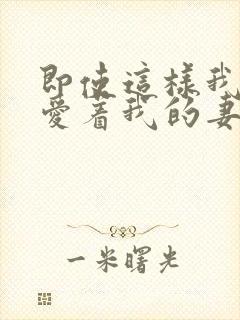 即使這樣我
愛着我的妻
一米曙光